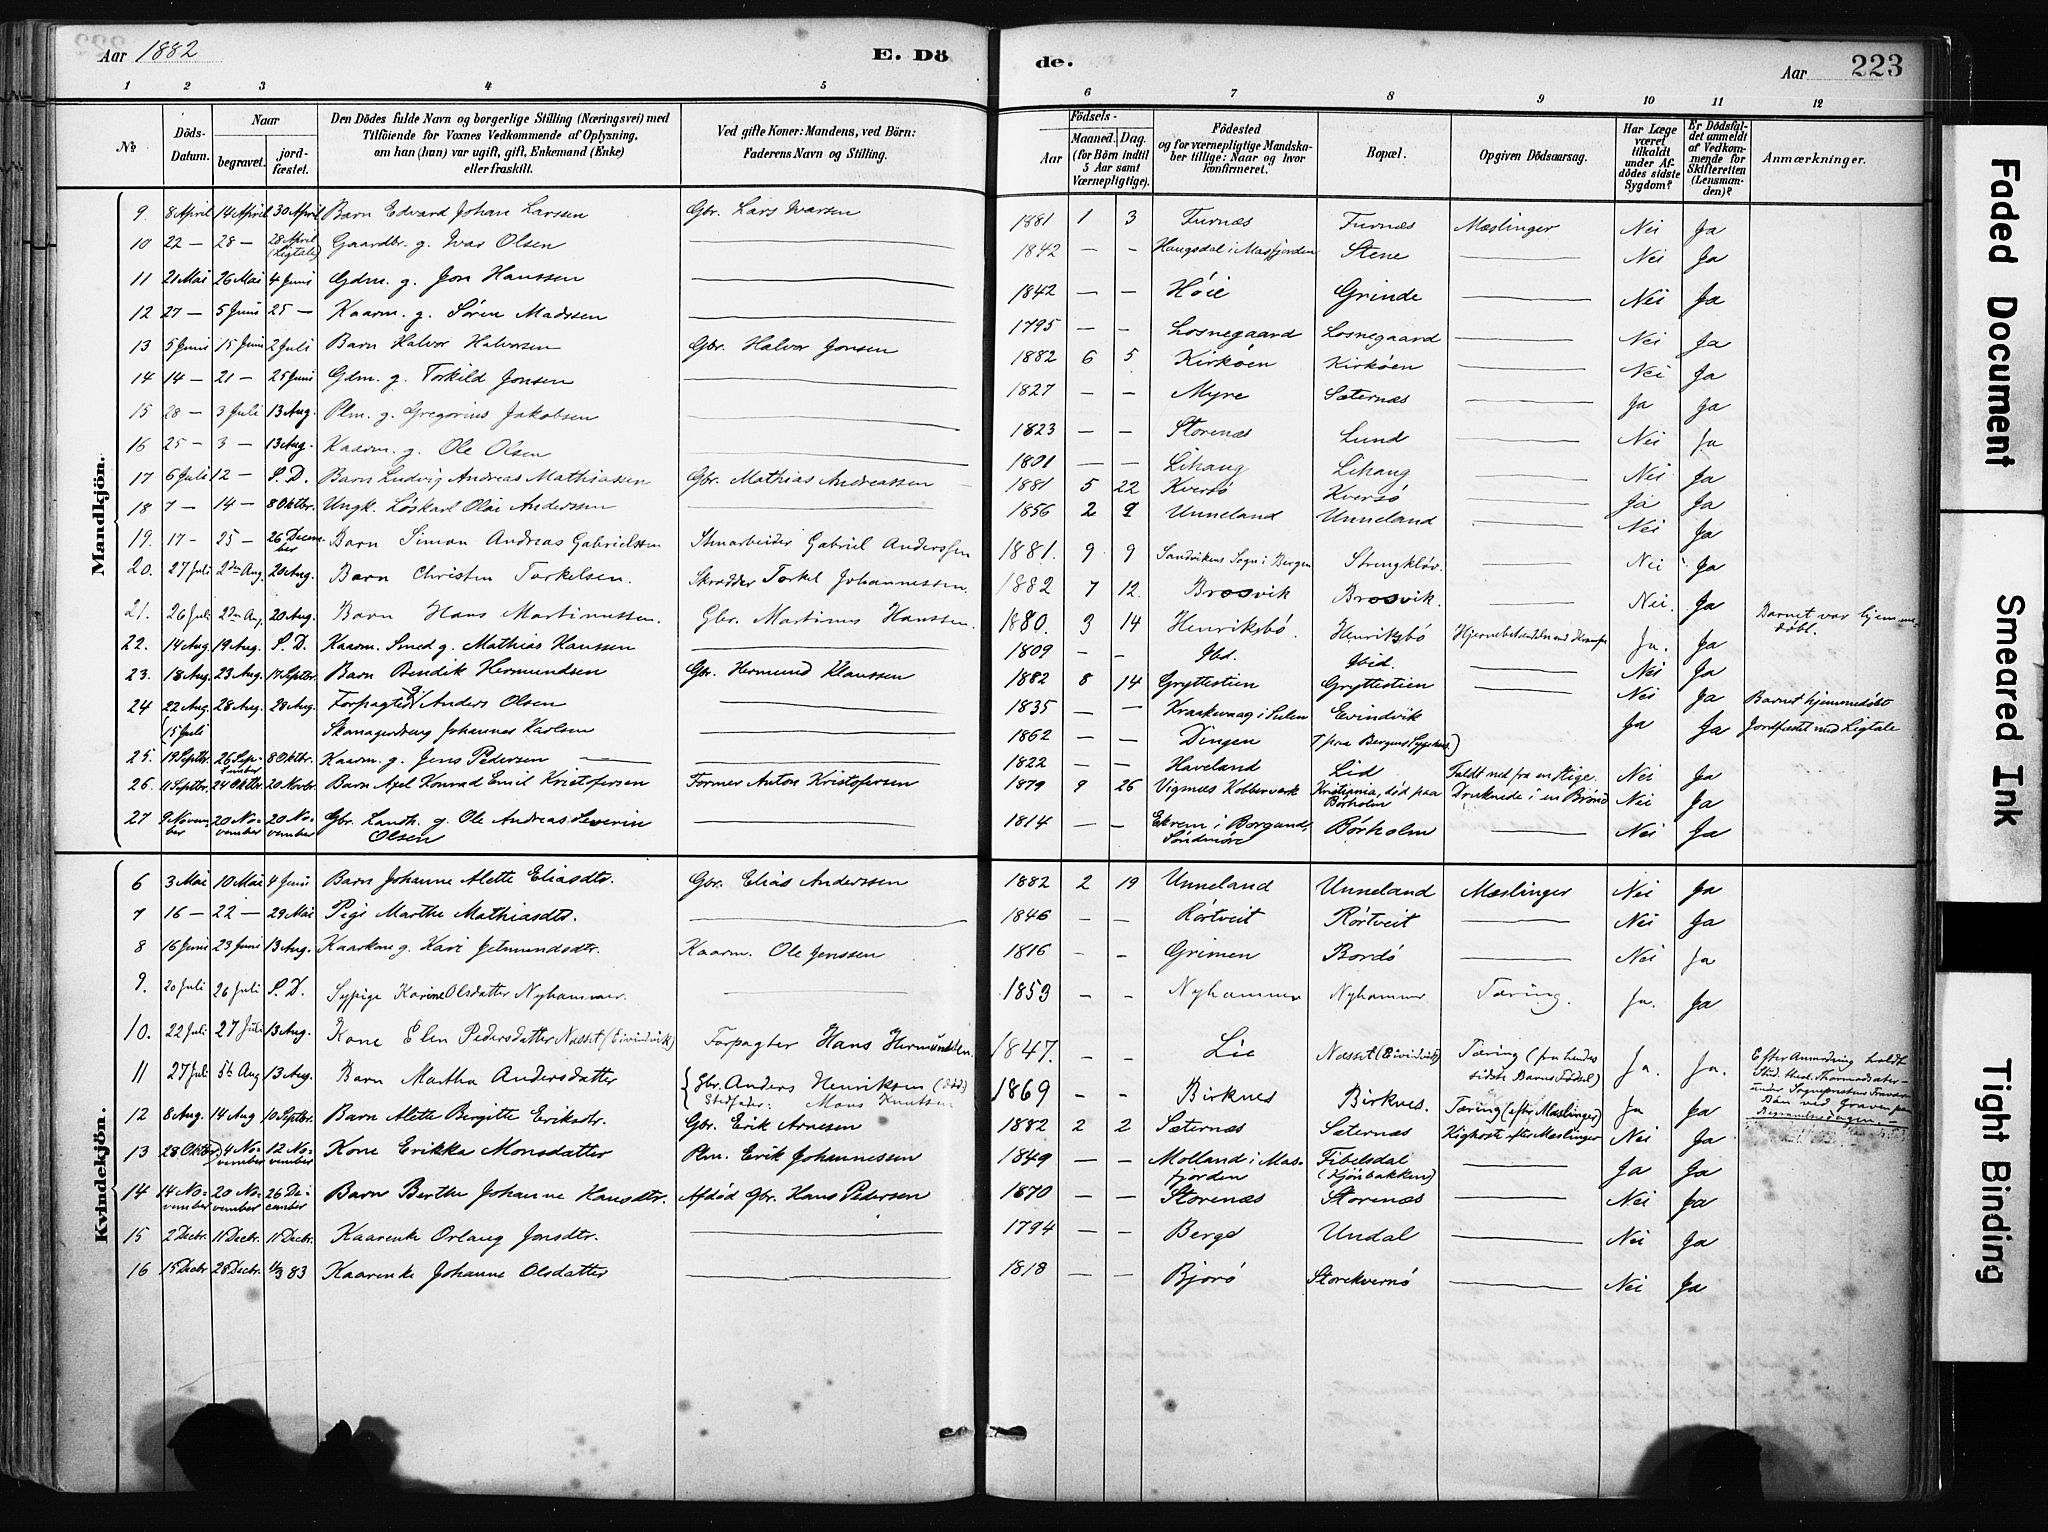 Aar 1882
E. Dö
de.
Aar
223
1 2 3 4 5 6 7 8 9 10 11 12
No
Döds-Datum.
Naar
begravet.
jordfæstet.
Den Dödes fulde Navn og borgerlige Stilling (Næringsvei) med
Tilföiende for Voxnes Vedkommende af Oplysning,
om han (hun) var ugift, gift, Enkemand (Enke)
eller fraskilt.
Ved gifte Koner: Mandens, ved Börn:
Faderens Navn og Stilling.
Födsels-
Aar
Maaned. Dag.
(for Börn indtil
5 Aar samt
Værnepligtige).
Födested
og for værnepligtige Mandska-
ber tillige: Naar og hvor
konfirmeret.
Bopæl.
Opgiven Dödsaarsag.
Har Læge
været
tilkaldt
under Af-
dödes sidste
Sygdom?
Er Dödsfal-
det anmeldt
af Vedkom-
mende for
Skifteretten
(Lensman-
den)?
Anmærkninger.
Mandkjön.
9 8 April 14 April 30 April Barn Edvard Johan Larssen Gbr. Lars Ivarsen 1881 1 3 Furnæs Furnæs Mæslinger Nei Ja
10 22 — 28 — 28 April (Ligtale) Gaardbr. g. Ivar Olsen 1842 — — Haugsdal i Masfjorden Stene Nei Ja
11 21 Mai 26 Mai 4 Juni Gdm. g. Jon Hanssen 1842 — — Höie Grinde Nei Ja
12 27 — 5 Juni 25 — Kaarm. g. Sören Madssen 1795 — — Losnegaard Losnegaard Nei Ja
13 5 Juni 15 Juni 2 Juli Barn Halvor Halvorsen Gbr. Halvor Jonsen 1882 6 5 Kirköen Kirköen Nei Ja
14 14 — 21 — 25 Juni Gdm. g. Torkild Jonsen 1827 — — Myre Sæternæs Ja Ja
15 28 — 3 Juli 13 Aug. Plm. g. Gregorius Jakobsen 1823 — — Storenæs Lund Nei Ja
16 25 — 3 — 13 Aug. Kaarm. g. Ole Olsen 1801 — — Lihaug Lihaug Nei Ja
17 6 Juli 12 — S. D. Barn Ludvig Andreas Mathiassen Gbr. Mathias Andreassen 1881 5 22 Kversö Kversö Ja Ja
18 7 — 14 — 8 Oktbr. Ungk. Löskarl Olai Anderssen 1856 2 9 Unneland Unneland Nei Ja
19. 17 - 25 — 26 December Barn Simon Andreas Gabrielssen Stenarbeider Gabriel Anderssen 1881. 9 9 Sandvikens Sogn i Bergen Nei Ja
20. 27 Juli 2den Aug. 20 Aug. Barn Christen Torkelsen. Skrædder Torkel Johannessen 1882 7 12. Brosvik Brosvik. Nei. Ja
21. 26 Juli 2den Aug. 20 Aug. Barn Hans Martinussen. Gbr. Martinus Hanssen. 1880. 3 14 Henriksbö. Henriksbö Ja. Ja Barnet var hjemmedöbt.
22. 14 Aug. 19 Aug. S. D. Kaarm. Smed g. Mathias Hanssen 1809 Ibd. Ibid. Nei Ja
23. 18 Aug. 23 Aug. 17 Septbr. Barn Bendik Hermundsen Gbr. Hermund Klaussen 1882 8 14 Gryttestien Gryttestien Nei Ja Barnet hjemmedöbt
24 22 Aug. 28 Aug. 28 Aug. Forpagter g. Anders Olsen 1835 — — Kraakevaag i Sulen Evindvik Ja Ja Jordfæstet med Ligtale
(15 Juli Johannes Karlsen 1862 — — Dingen
25. 19 Septbr. 26 September 8 Oktbr. Kaarm. g. Jens Pedersen 1822 — — Haveland Lid Faldt ned fra en Stige. Nei Ja
26. 11 Septbr. 24 Oktbr. 20 Novbr. Barn Axel Konrad Emil Kristofersen Former Anton Kristofersen 1879 9 26 Vignæs Kobberverk Kristiania, död paa Börholm Druknede i en Brönd Nei Ja
27 9 November 20 November 20 November Gbr. Landh. g. Ole Andreas Severin Olsen 1814 — — Ekrem i Borgund, Söndmöre Börholm Nei Ja
Kvindekjön.
6 3 Mai 10 Mai 4 Juni Barn Johanne Alette Eliasdtr. Gbr. Elias Anderssen 1882 2 19 Unneland Unneland Mæslinger Nei Ja
7 16 — 22 — 29 Mai Pige Marthe Mathiasdtr. 1846 — — Rörtveit Rörtveit Nei Ja
8 16 Juni 23 Juni 13 Aug. Kaarkone g. Kari Jetmundsdtr. Kaarm. Ole Jenssen 1816 - — Grimen Bordö Nei Ja
9. 20 Juli 26 Juli S. D. Sypige Karine Olsdatter Nyhammer. 1853 - - Nyhammer Nyhammer Tæring. Ja. Ja
10. 22 Juli 27 Juli 13 Aug. Kone Elen Pedersdatter Næsset (Eivindvik) Forpagter Hans Hermundsen. 1847. — — Lie Næsset (Eivindvik) Tæring (fra hendes sidste Barns Födsel) Ja. Ja.
11 27 Juli 5te Aug 13 Aug. Barn Martha Andersdatter Gbr. Anders Henriksen (död) Stedfader: Mons Knutsen 1869 — — Birknes Birknes. Tæring (efter Mæslinger) Ja Ja
12 8 Aug. 14 Aug 10 Septbr. Barn Alette Birgitte Eriksdtr. Gbr. Erik Arnesen 1882 2 2 Sæternæs Sæternæs Kighoste efter Mæslinger Nei Ja
13 28 Oktbr. 4 November 12 November Kone Erikka Monsdatter Plm. Erik Johannessen 1849 — — Molland i Masfjorden Fibelsdal Ja Ja
14 14 November 20 November 26 December Barn Berthe Johanne Hansdtr. Afdöd Gbr. Hans Pedersen 1870 — — Storenæs Storenæs Nei Ja
15 2 Decbr. 11 Decbr. 11 Decbr. Kaarenke Orlaug Jonsdtr. 1794 — — Berge Undal Nei Ja
16 15 Decbr 28 Decbr. 11/3 83 Kaarenke Johanne Olsdatter 1818 — — Bjorö Storekvernö Nei Ja
Faded Document
Smeared Ink
Tight Binding